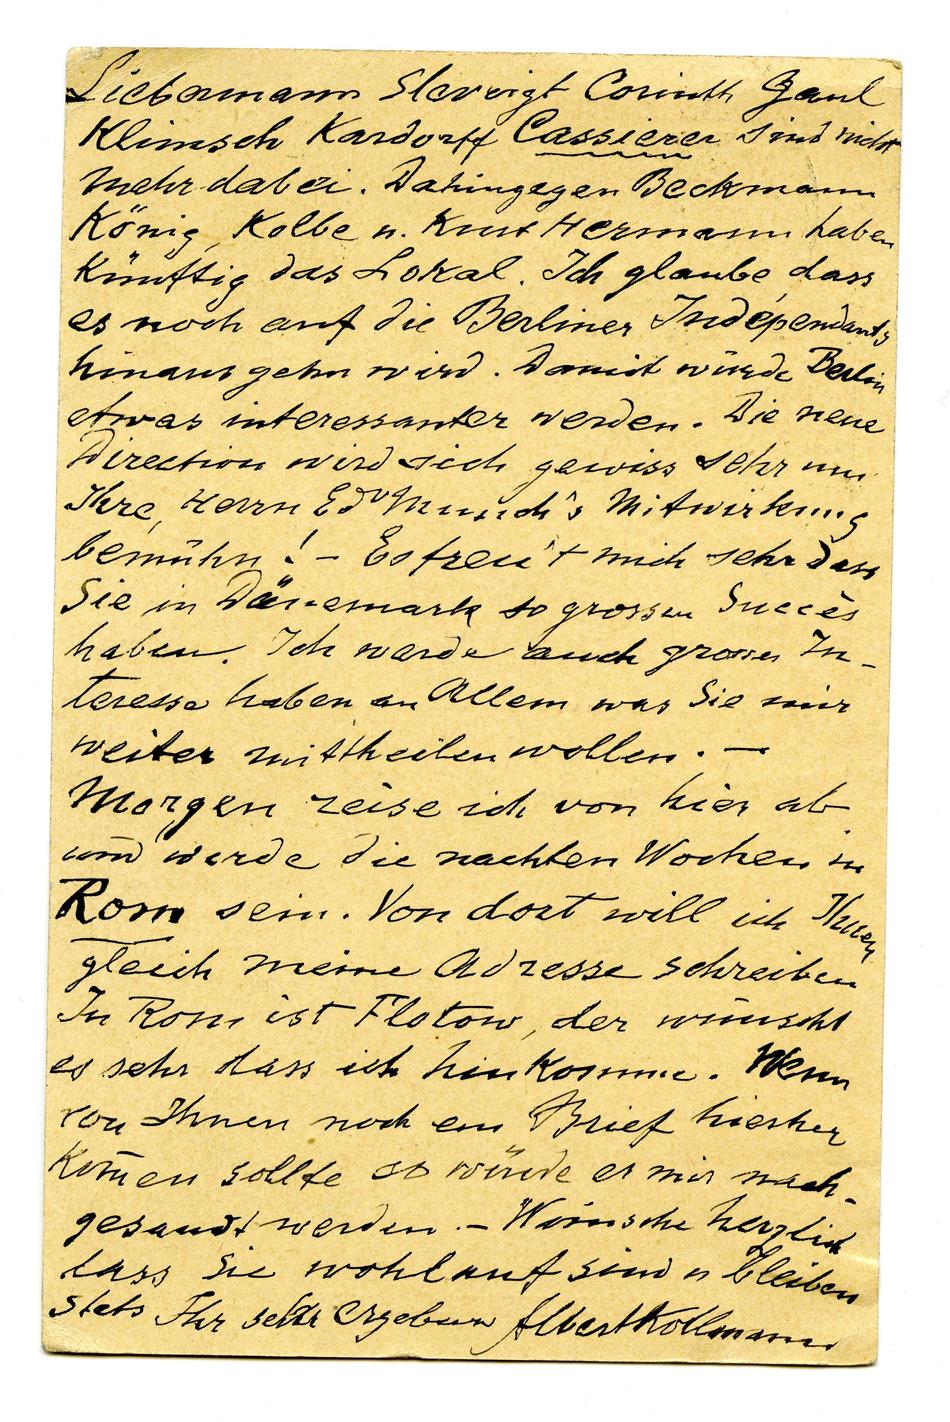 Liebermann Slevoigt Corinth Gaul
Klimsch Kardorff Cassierer sind nicht
mehr dabei. Dahingegen Beckmann
König, Kolbe u. Kurt Hermann haben
künftig das Lokal. Ich glaube, dass
es noch auf die Berliner Indépendants
hinaus gehn wird. Damit würde Berlin
etwas interessanter werden. Die neue
Direction wird sich gewiss sehr um
Ihre, Herrn Edv Munch's Mitwirkung
bemühn! – Es freu't mich sehr dass
Sie in Dänemark so grossen Succès
haben. Ich werde auch grosses In-
teresse haben an Allem was Sie mir
weiter mittheilen wollen. —
Morgen reise ich von hier ab
und werde die nachten Wochen in
Rom sein. Von dort will ich Ihnen
gleich meine Adresse schreiben
In Rom ist Flotow, der wünscht
es sehr dass ich hinkomme. Wenn
von Ihnen noch ein Brief hierher
kom̄en sollte so würde er mir nach-
gesandt werden. – Wünsche herzlich
dass Sie wohlauf sind u bleiben
Stets Ihr sehr ergebener Albert Kollmann